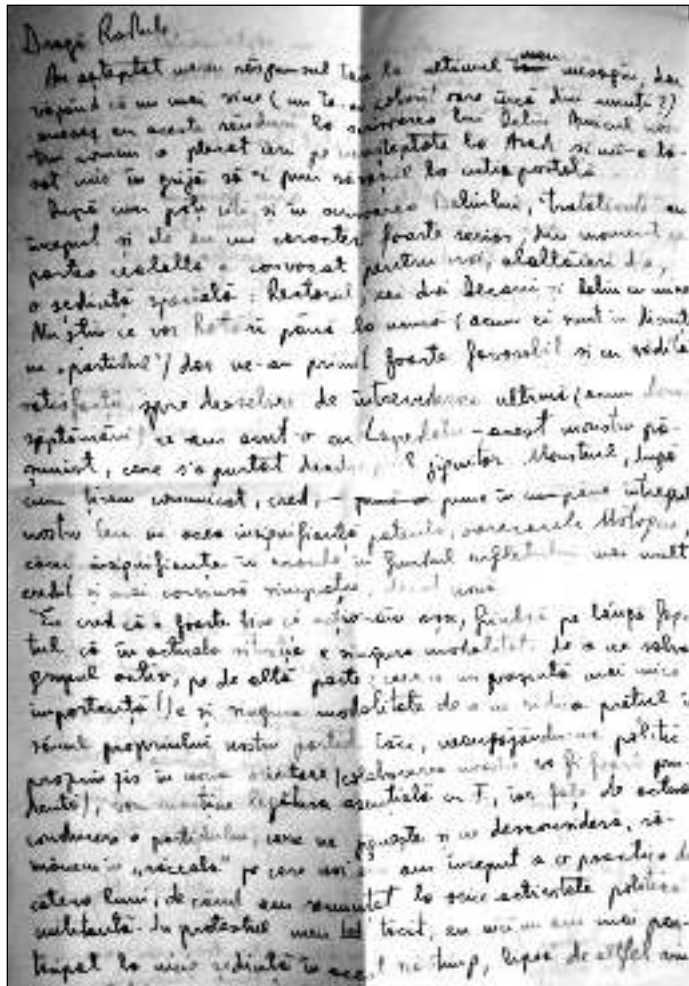 Dragă Radule,
Am așteptat mereu răspunsul tău la ultimul meu mesagiu, dar
văzând că nu mai vine (nu te-ai coborît oare încă din munți?)
anexez aceste rânduri la scrisoarea lui Deliu. Amicul nos-
tru comun a plecat ieri pe neașteptate la Arad și mi-a lă-
sat mie în grijă să-i pun răvașul la cutia poștală.
După cum poți citi și în scrisoarea Deliului, "tratativele" au
început și ele au un caracter foarte serios, din moment ce
partea cealaltă a convocat pentru noi, alaltăieri d.a.,
o ședință specială: Rectorul, cei doi Decani și Deliu cu mine.
Nu știu ce vor hotărî până la urmă (acum că sunt în discuții
cu "partidul") dar ne-au primit foarte favorabil și cu vădită
satisfacție, spre deosebire de întrevederea ultimă (acum două
săptămâni) ce am avut-o cu Lapedatu - acest monstru pă-
șunist, care s'a purtat deadreptul jignitor. Monstrul, după
cum ți-am comunicat, cred, pune în cumpănă întregul
nostru cu acea insignifiantă
cărei insignifiante în fundul sufletului mai mult
credit și mai consumă simpatie, decât nouă.
Eu cred că e foarte bine că acționăm așa, fiindcă pe lângă fap-
tul că în actuala situație e singura modalitate de a ne salva
grupul activ, pe de altă parte (ceea ce nu prezintă mai mică
importanță!) e și singura modalitate de a ne ridica prețul în
sânul propriului nostru partid. Căci, neangajându-ne politic
propriu zis în noua (colaborarea noastră va fi foarte pru-
dentă), vom menține legătura esențială cu T., iar față de actuala
conducere a partidului, care ne jignește și ne desconsideră, ră-
mânem în "răceala" pe care noi am început a o practica de
câteva luni, de când am renunțat la orice activitate politică
militantă. În protestul meu tacit, eu nici nu am mai par-
ticipat la nicio ședință în acest răstimp, lipsă de altfel